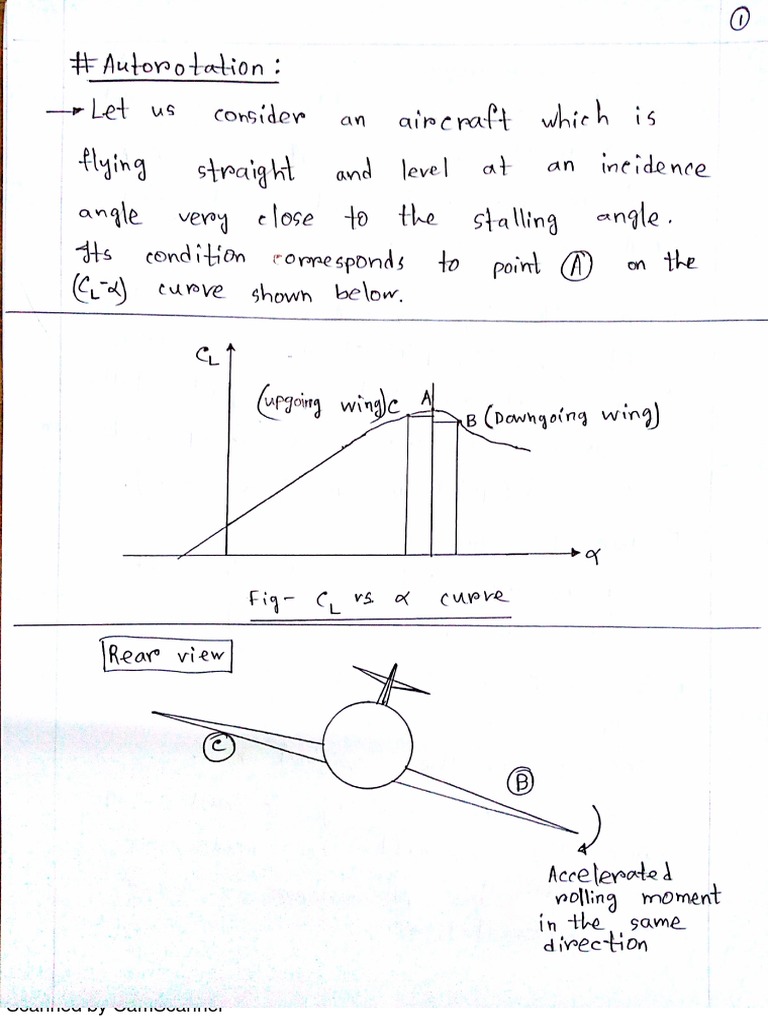 ①
# Autorotation:
→ Let us consider an aircraft which is
flying straight and level at an incidence
angle very close to the stalling angle.
Its condition corresponds to point Ⓐ on the
(CL-α) curve shown below.
CL
(upgoing wing) C A B (Downgoing wing)
α
Fig- CL vs α curve
Rear view
Ⓒ
Ⓑ
Accelerated
rolling moment
in the same
direction
Scanned by CamScanner